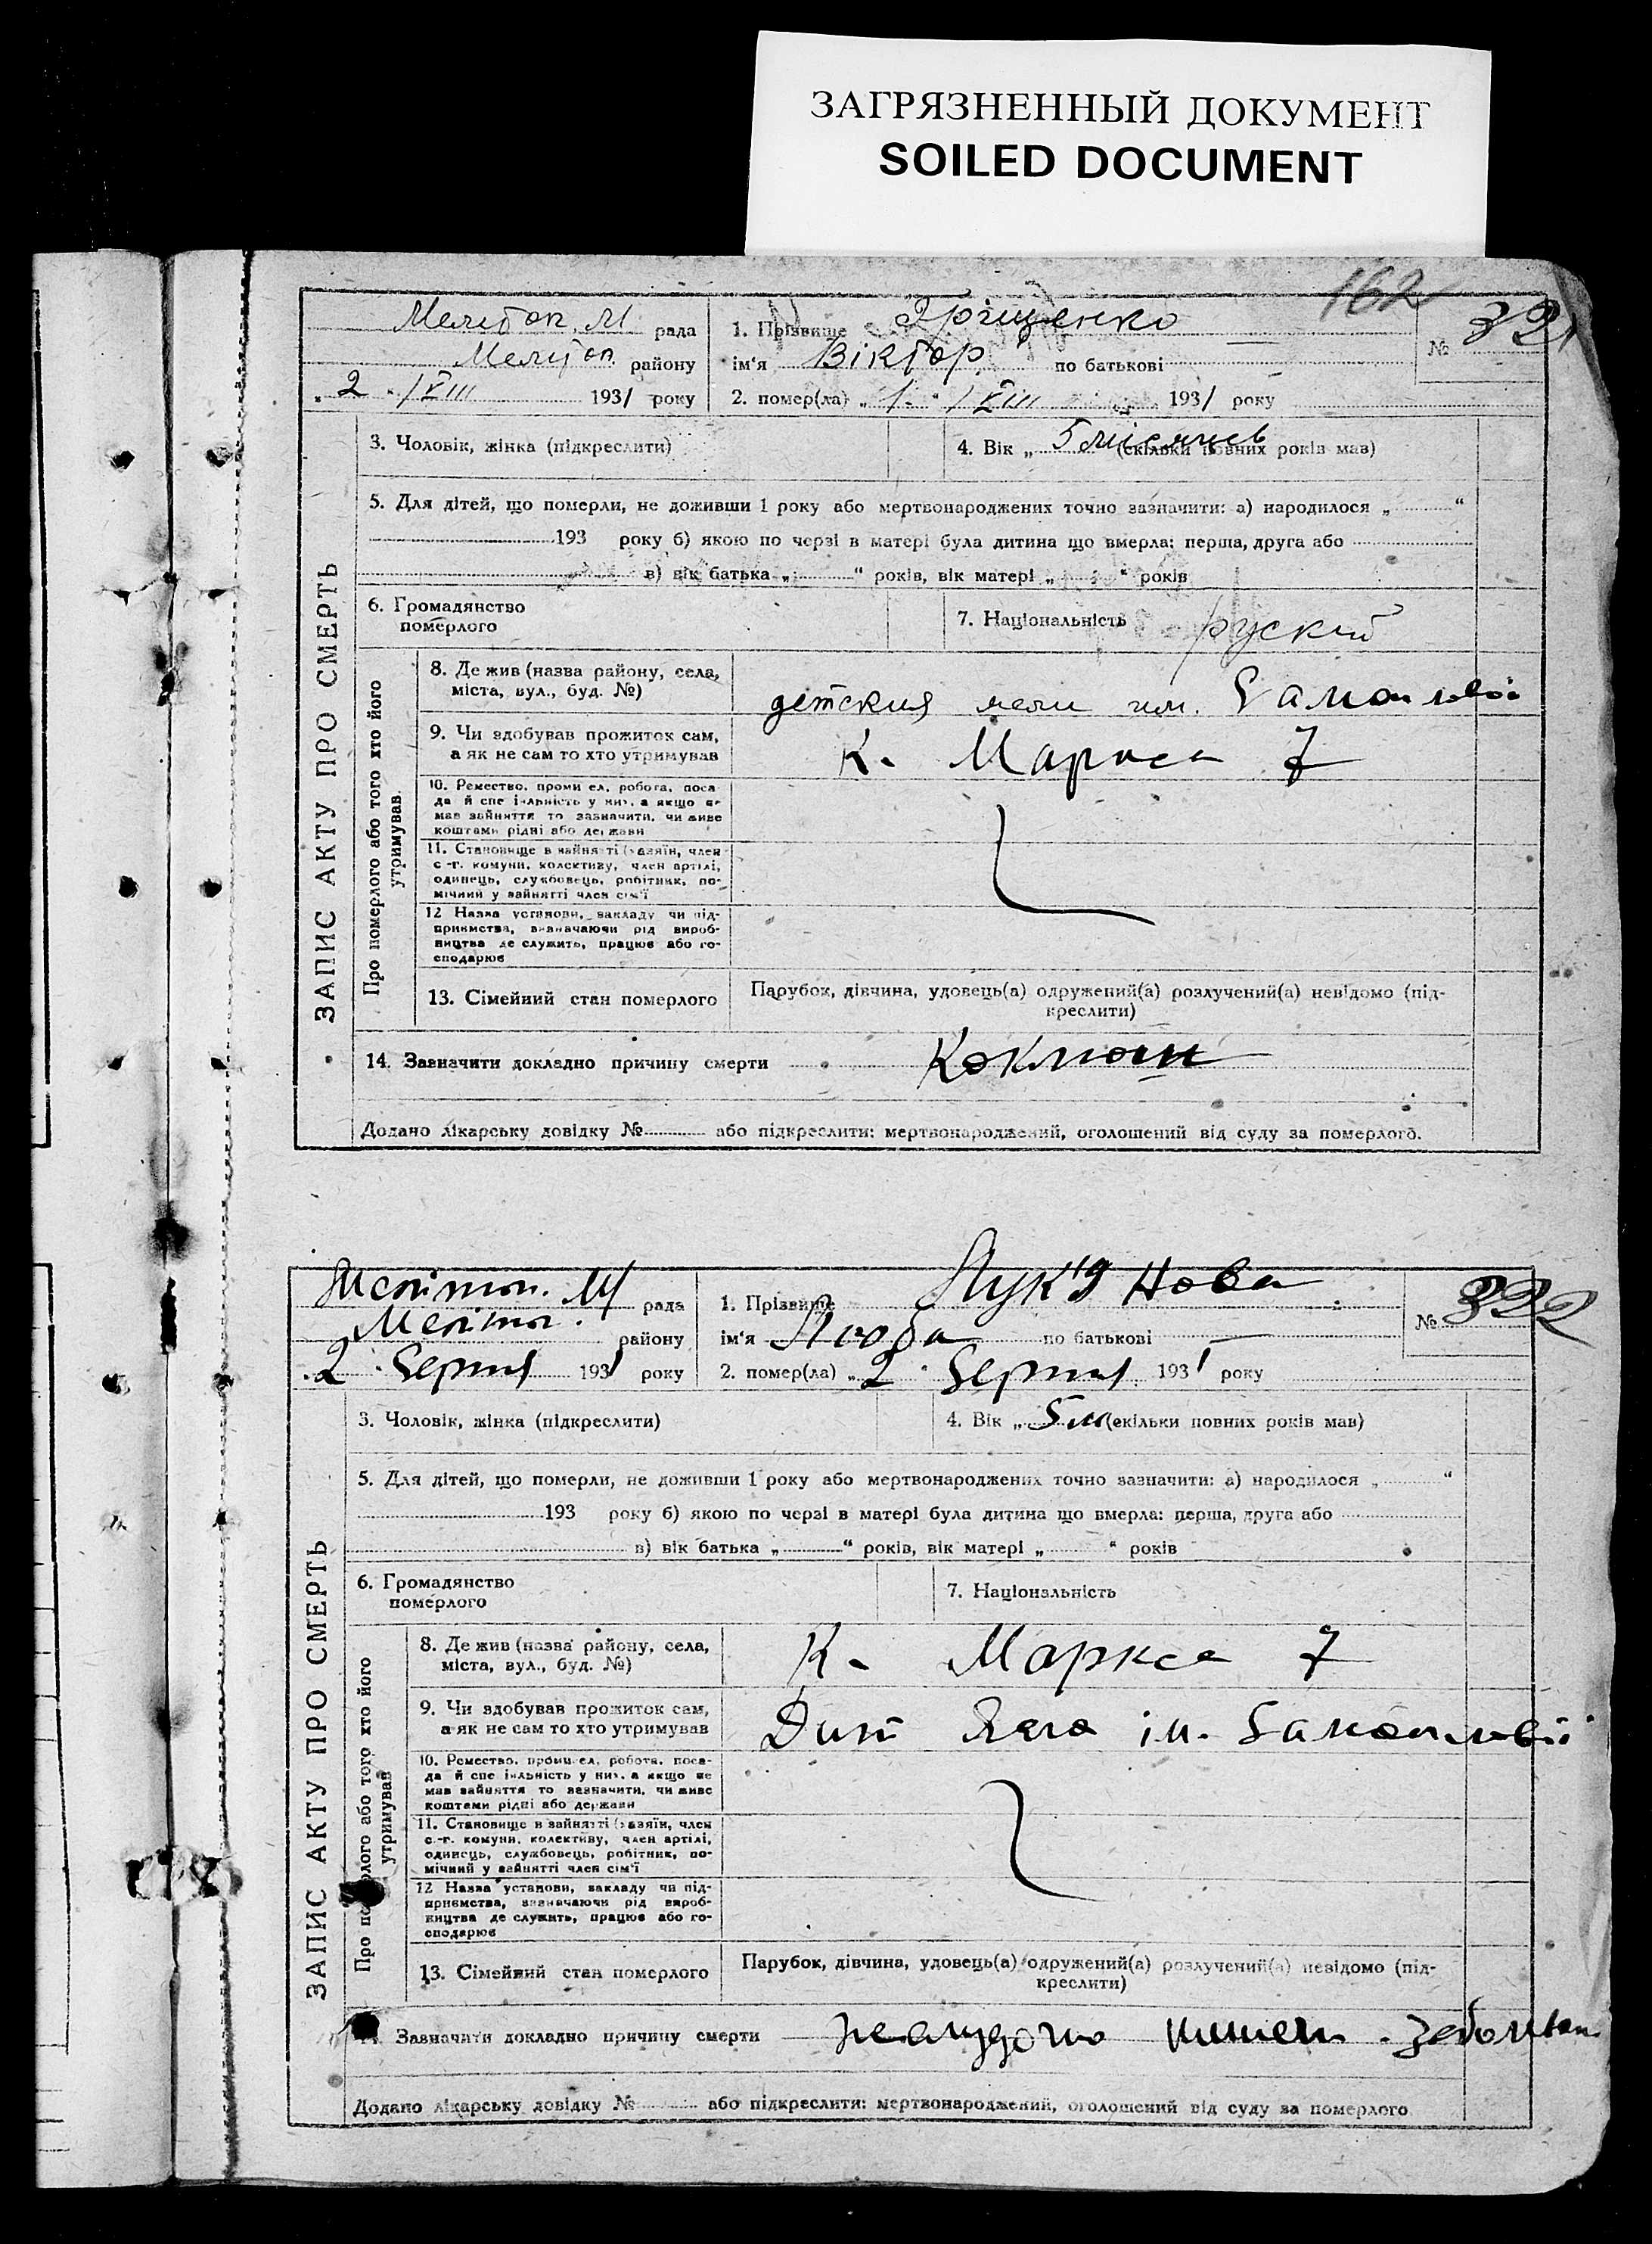 ЗАГРЯЗНЕННЫЙ ДОКУМЕНТ
SOILED DOCUMENT
162
Мелітоп. М рада
Мелітоп. району
"2" /VIII 1931 року
1. Прізвище Гріщенко
ім'я Віктор по батькові —
2. помер(ла) "1" /VIII 1931 року
№ 321
ЗАПИС АКТУ ПРО СМЕРТЬ
3. Чоловік, жінка (підкреслити)
4. Вік „ 5 місяцев (скільки повних років мав)
5. Для дітей, що померли, не доживши 1 року або мертвонароджених точно зазначити: а) народилося „ “
193 року б) якою по черзі в матері була дитина що вмерла: перша, друга або
в) вік батька „ “ років, вік матері „ “ років
6. Громадянство
померлого
7. Національність рускій
Про померлого або того хто його
утримував
8. Де жив (назва району, села,
міста, вул., буд. №)
детския ясли им.
9. Чи здобував прожиток сам,
а як не сам то хто утримував
К. Маркса 7
10. Ремество, промисел, робота, поса-
да й спеціяльність у них, а якщо не
мав зайняття то зазначити, чи живе
коштами рідні або держави
11. Становище в зайнятті (хазяїн, член
с.-г. комуни, колективу, член артілі,
одинець, службовець, робітник, по-
мічний у зайнятті член сім'ї
12 Назва установи, закладу чи під-
приємства, визначаючи рід вироб-
ництва де служить, працює або го-
сподарює
13. Сімейний стан померлого
Парубок, дівчина, удовець(а) одружений(а) розлучений(а) невідомо (під-
креслити)
14. Зазначити докладно причину смерти Коклюш
Додано лікарську довідку № або підкреслити: мертвонароджений, оголошений від суду за померлого.
Мелітоп. М рада
Мелітоп. району
"2" Серпня 1931 року
1. Прізвище Лук'янова
ім'я Люба по батькові —
2. помер(ла) „2" Серпня 1931 року
№ 322
ЗАПИС АКТУ ПРО СМЕРТЬ
3. Чоловік, жінка (підкреслити)
4. Вік „ 5 м (скільки повних років мав)
5. Для дітей, що померли, не доживши 1 року або мертвонароджених точно зазначити: а) народилося „ “
193 року б) якою по черзі в матері була дитина що вмерла: перша, друга або
в) вік батька „ “ років, вік матері „ “ років
6. Громадянство
померлого
7. Національність
Про померлого або того хто його
утримував
8. Де жив (назва району, села,
міста, вул., буд. №)
К. Маркса 7
9. Чи здобував прожиток сам,
а як не сам то хто утримував
Дит Ясла ім.
10. Ремество, промисел, робота, поса-
да й спеціяльність у них, а якщо не
мав зайняття то зазначити, чи живе
коштами рідні або держави
11. Становище в зайнятті (хазяїн, член
с.-г. комуни, колективу, член артілі,
одинець, службовець, робітник, по-
мічний у зайнятті член сім'ї
12 Назва установи, закладу чи під-
приємства, визначаючи рід вироб-
ництва де служить, працює або го-
сподарює
13. Сімейний стан померлого
Парубок, дівчина, удовець(а) одружений(а) розлучений(а) невідомо (під-
креслити)
Зазначити докладно причину смерти желудочно кишеч.
Додано лікарську довідку № або підкреслити: мертвонароджений, оголошений від суду за померлого